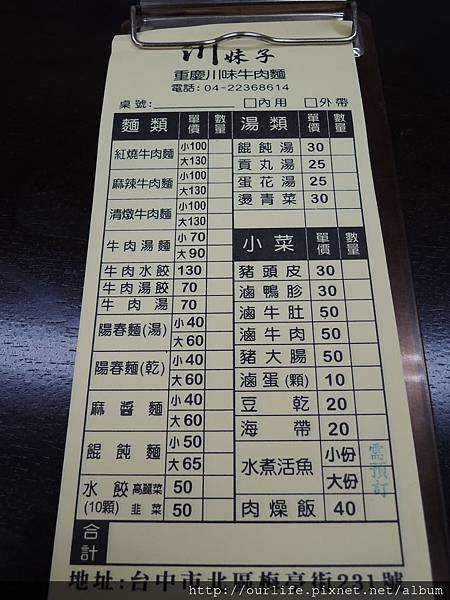 川妹子
重慶川味牛肉麵
電話:04-22368614
桌號: □內用 □外帶
麵類 單價 數量
紅燒牛肉麵 小100
大130
麻辣牛肉麵 小100
大130
清燉牛肉麵 小100
大130
牛肉湯麵 小70
大90
牛肉水餃 130
牛肉湯餃 70
牛肉湯 70
陽春麵(湯) 小40
大60
陽春麵(乾) 小40
大60
麻醬麵 小40
大60
餛飩麵 小50
大65
水餃 高麗菜 50
(10顆) 韭菜 50
合計
湯類 單價 數量
餛飩湯 30
貢丸湯 25
蛋花湯 25
燙青菜 30
小菜 單價 數量
豬頭皮 30
滷鴨胗 30
滷牛肚 50
滷牛肉 50
豬大腸 50
滷蛋(顆) 10
豆乾 20
海帶 20
水煮活魚 小份
大份
需預訂
肉燥飯 40
地址:台中市北區梅亭街231號
http://ourlife.pixnet.net/album